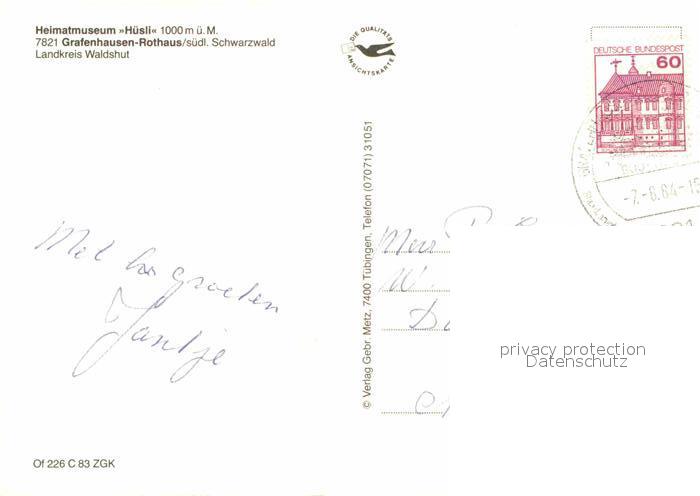 Heimatmuseum »Hüsli« 1000 m ü. M.
7821 Grafenhausen-Rothaus/südl. Schwarzwald
Landkreis Waldshut
DIE QUALITÄTS
ANSICHTSKARTE
DEUTSCHE BUNDESPOST
60
-7.-6.84-15
Met groeten
Jantje
© Verlag Gebr. Metz, 7400 Tübingen, Telefon (07071) 31051
privacy protection
Datenschutz
Of 226 C 83 ZGK